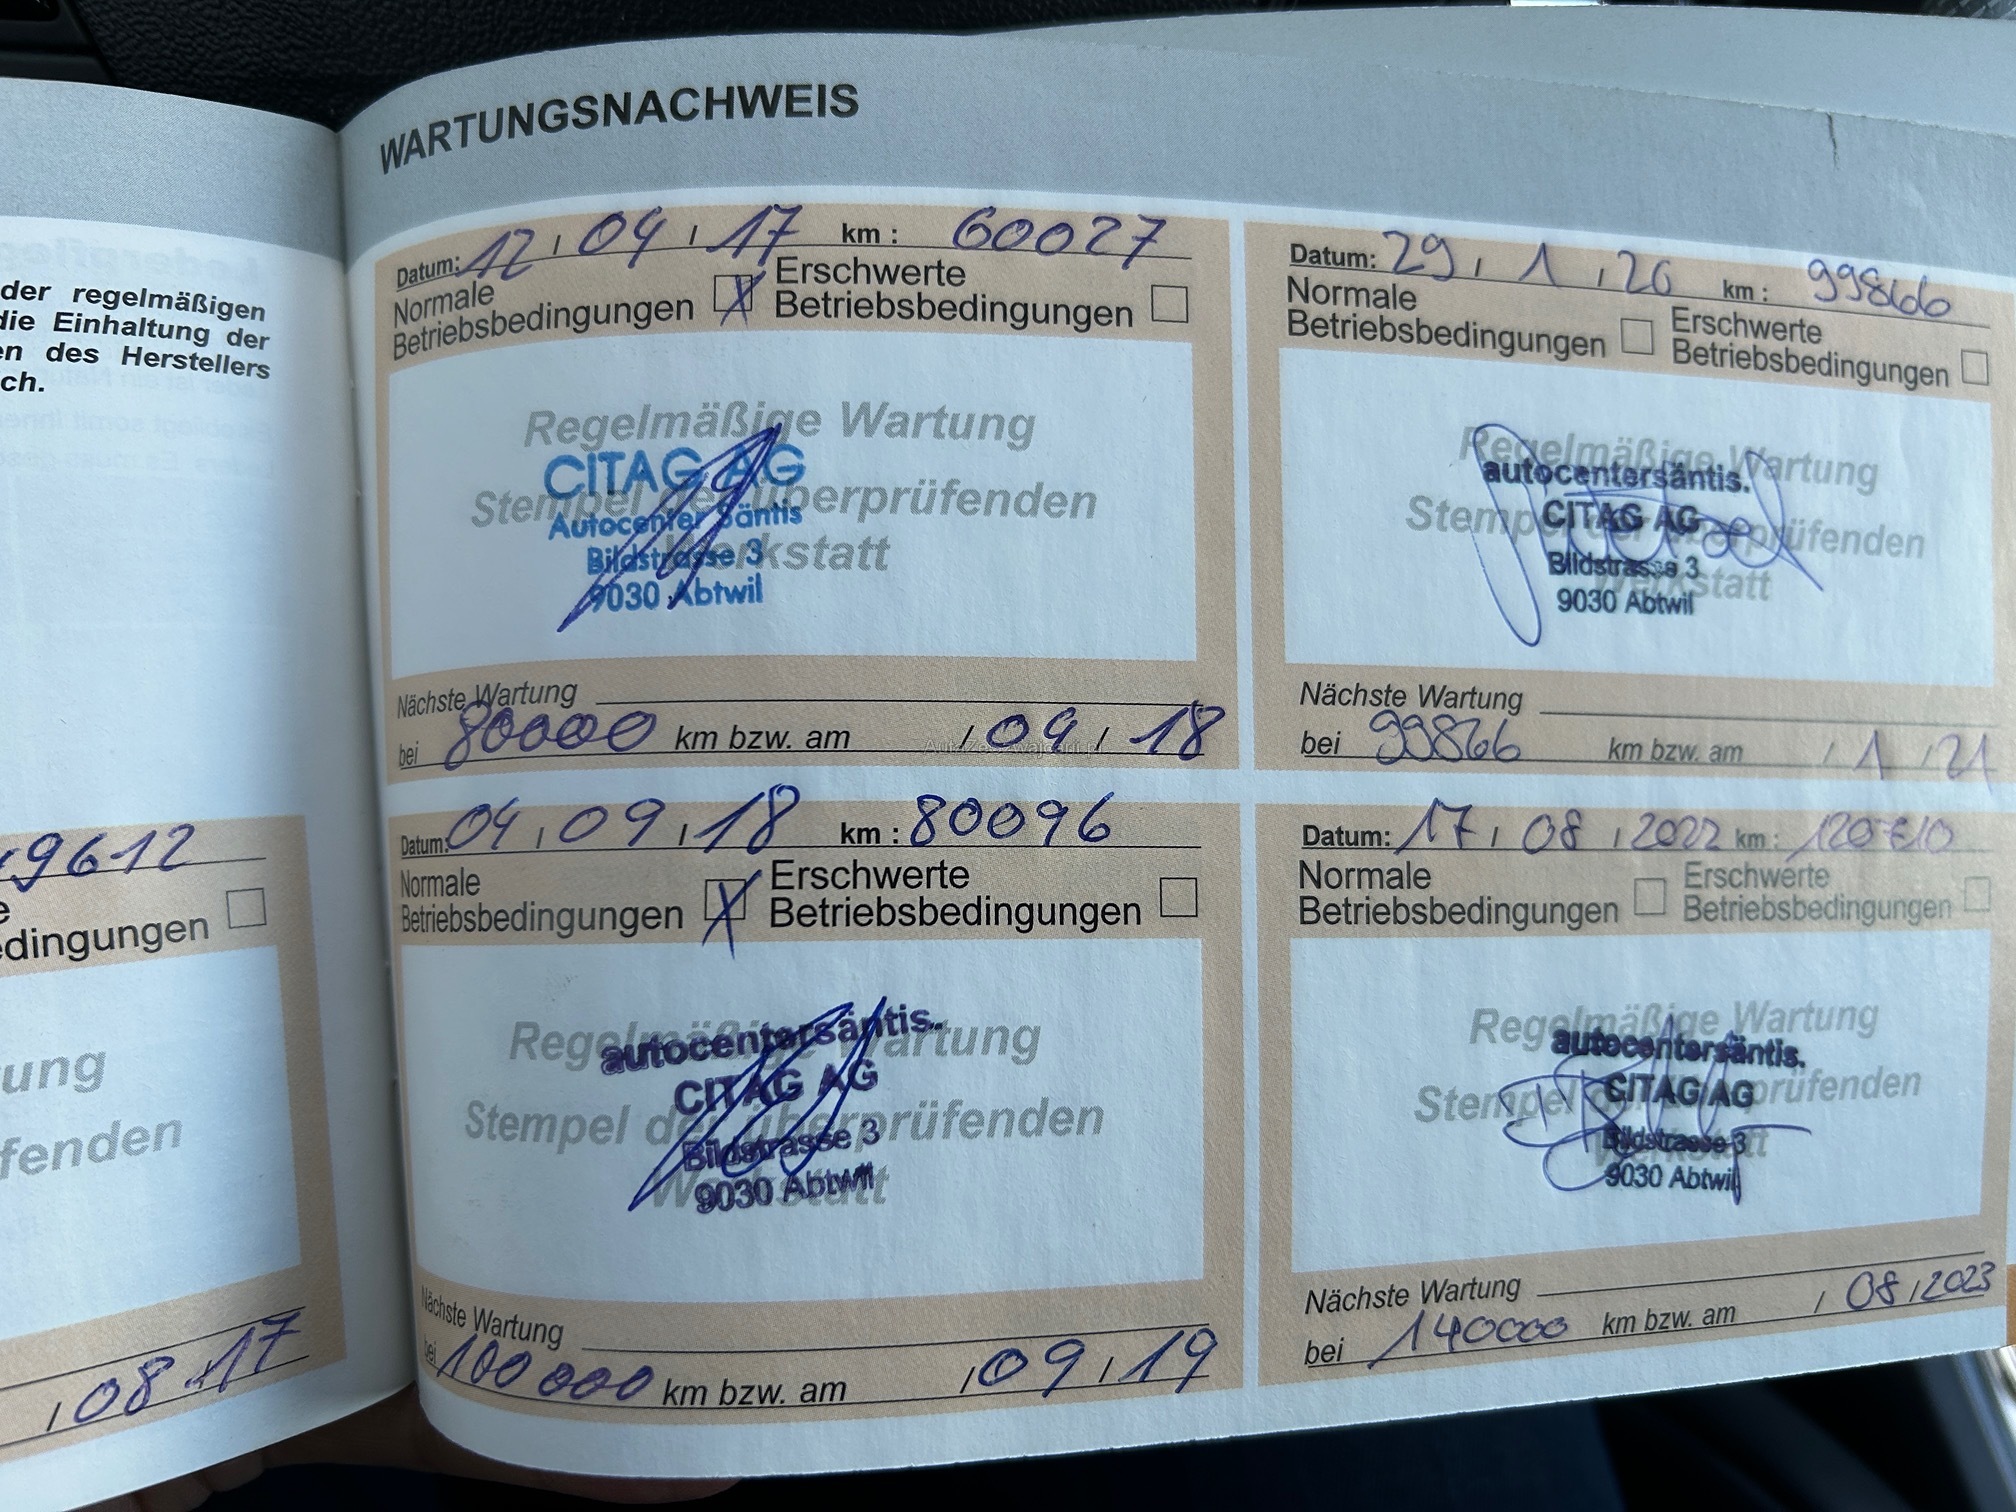 der regelmäßigen
die Einhaltung der
des Herstellers
9612
dingungen
08 17
WARTUNGSNACHWEIS
Datum: 12 / 04 / 17 km : 60027
Normale
Betriebsbedingungen X
Erschwerte
Betriebsbedingungen
Regelmäßige Wartung
Stempel der überprüfenden
Werkstatt
CITAG AG
Autocenter Säntis
Bildstrasse 3
9030 Abtwil
Nächste Wartung
bei 80000 km bzw. am / 09 / 18
Datum: 04 / 09 / 18 km : 80096
Normale
Betriebsbedingungen X
Erschwerte
Betriebsbedingungen
Regelmäßige Wartung
Stempel der überprüfenden
Werkstatt
autocentersäntis.
CITAG AG
Bildstrasse 3
9030 Abtwil
Nächste Wartung
bei 100000 km bzw. am / 09 / 19
Datum: 29 / 1 / 20 km : 99866
Normale
Betriebsbedingungen
Erschwerte
Betriebsbedingungen
Regelmäßige Wartung
Stempel der überprüfenden
Werkstatt
autocentersäntis.
CITAG AG
Bildstrasse 3
9030 Abtwil
Nächste Wartung
bei 99866 km bzw. am / 1 / 21
Datum: 17 / 08 / 2022 km :
Normale
Betriebsbedingungen
Erschwerte
Betriebsbedingungen
Regelmäßige Wartung
Stempel der überprüfenden
Werkstatt
autocentersäntis.
CITAG AG
Bildstrasse 3
9030 Abtwil
Nächste Wartung
bei 140000 km bzw. am / 08 / 2023